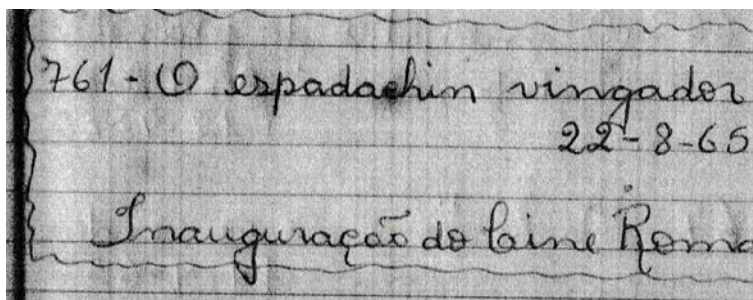 761 - O espadachin vingador
22-8-65
Inauguração do Cine Roma